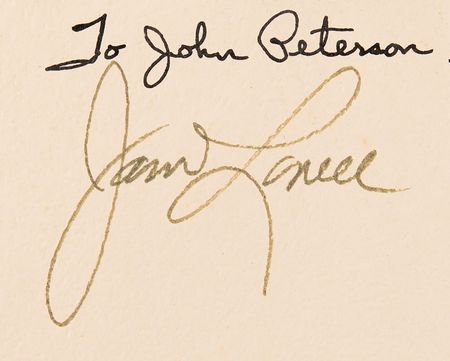 To John Peterson
James Lovell